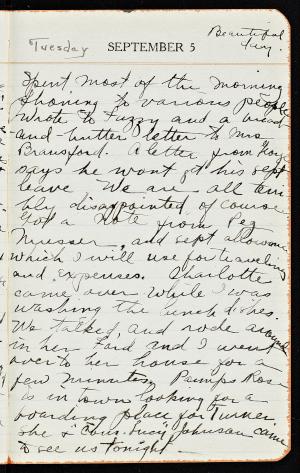 Beautiful
Tuesday SEPTEMBER 5 day.
Spent most of the morning
phoning to various people
wrote to Fuzzy and a bread
and-butter letter to Mrs
Bransford. A letter from
says he wont get his sept
leave. We are all terri
bly disappointed of course
Got a note from Peg
Musser, and sept allowance
which I will use for traveling
and expenses. Charlotte
came over while I was
washing the lunch dishes.
We talked, and rode around
in her Ford and I went
over to her house for a
few minutes. Pumps Rose
is in town looking for a
boarding place for Turner
she & Johnson came
to see us tonight.